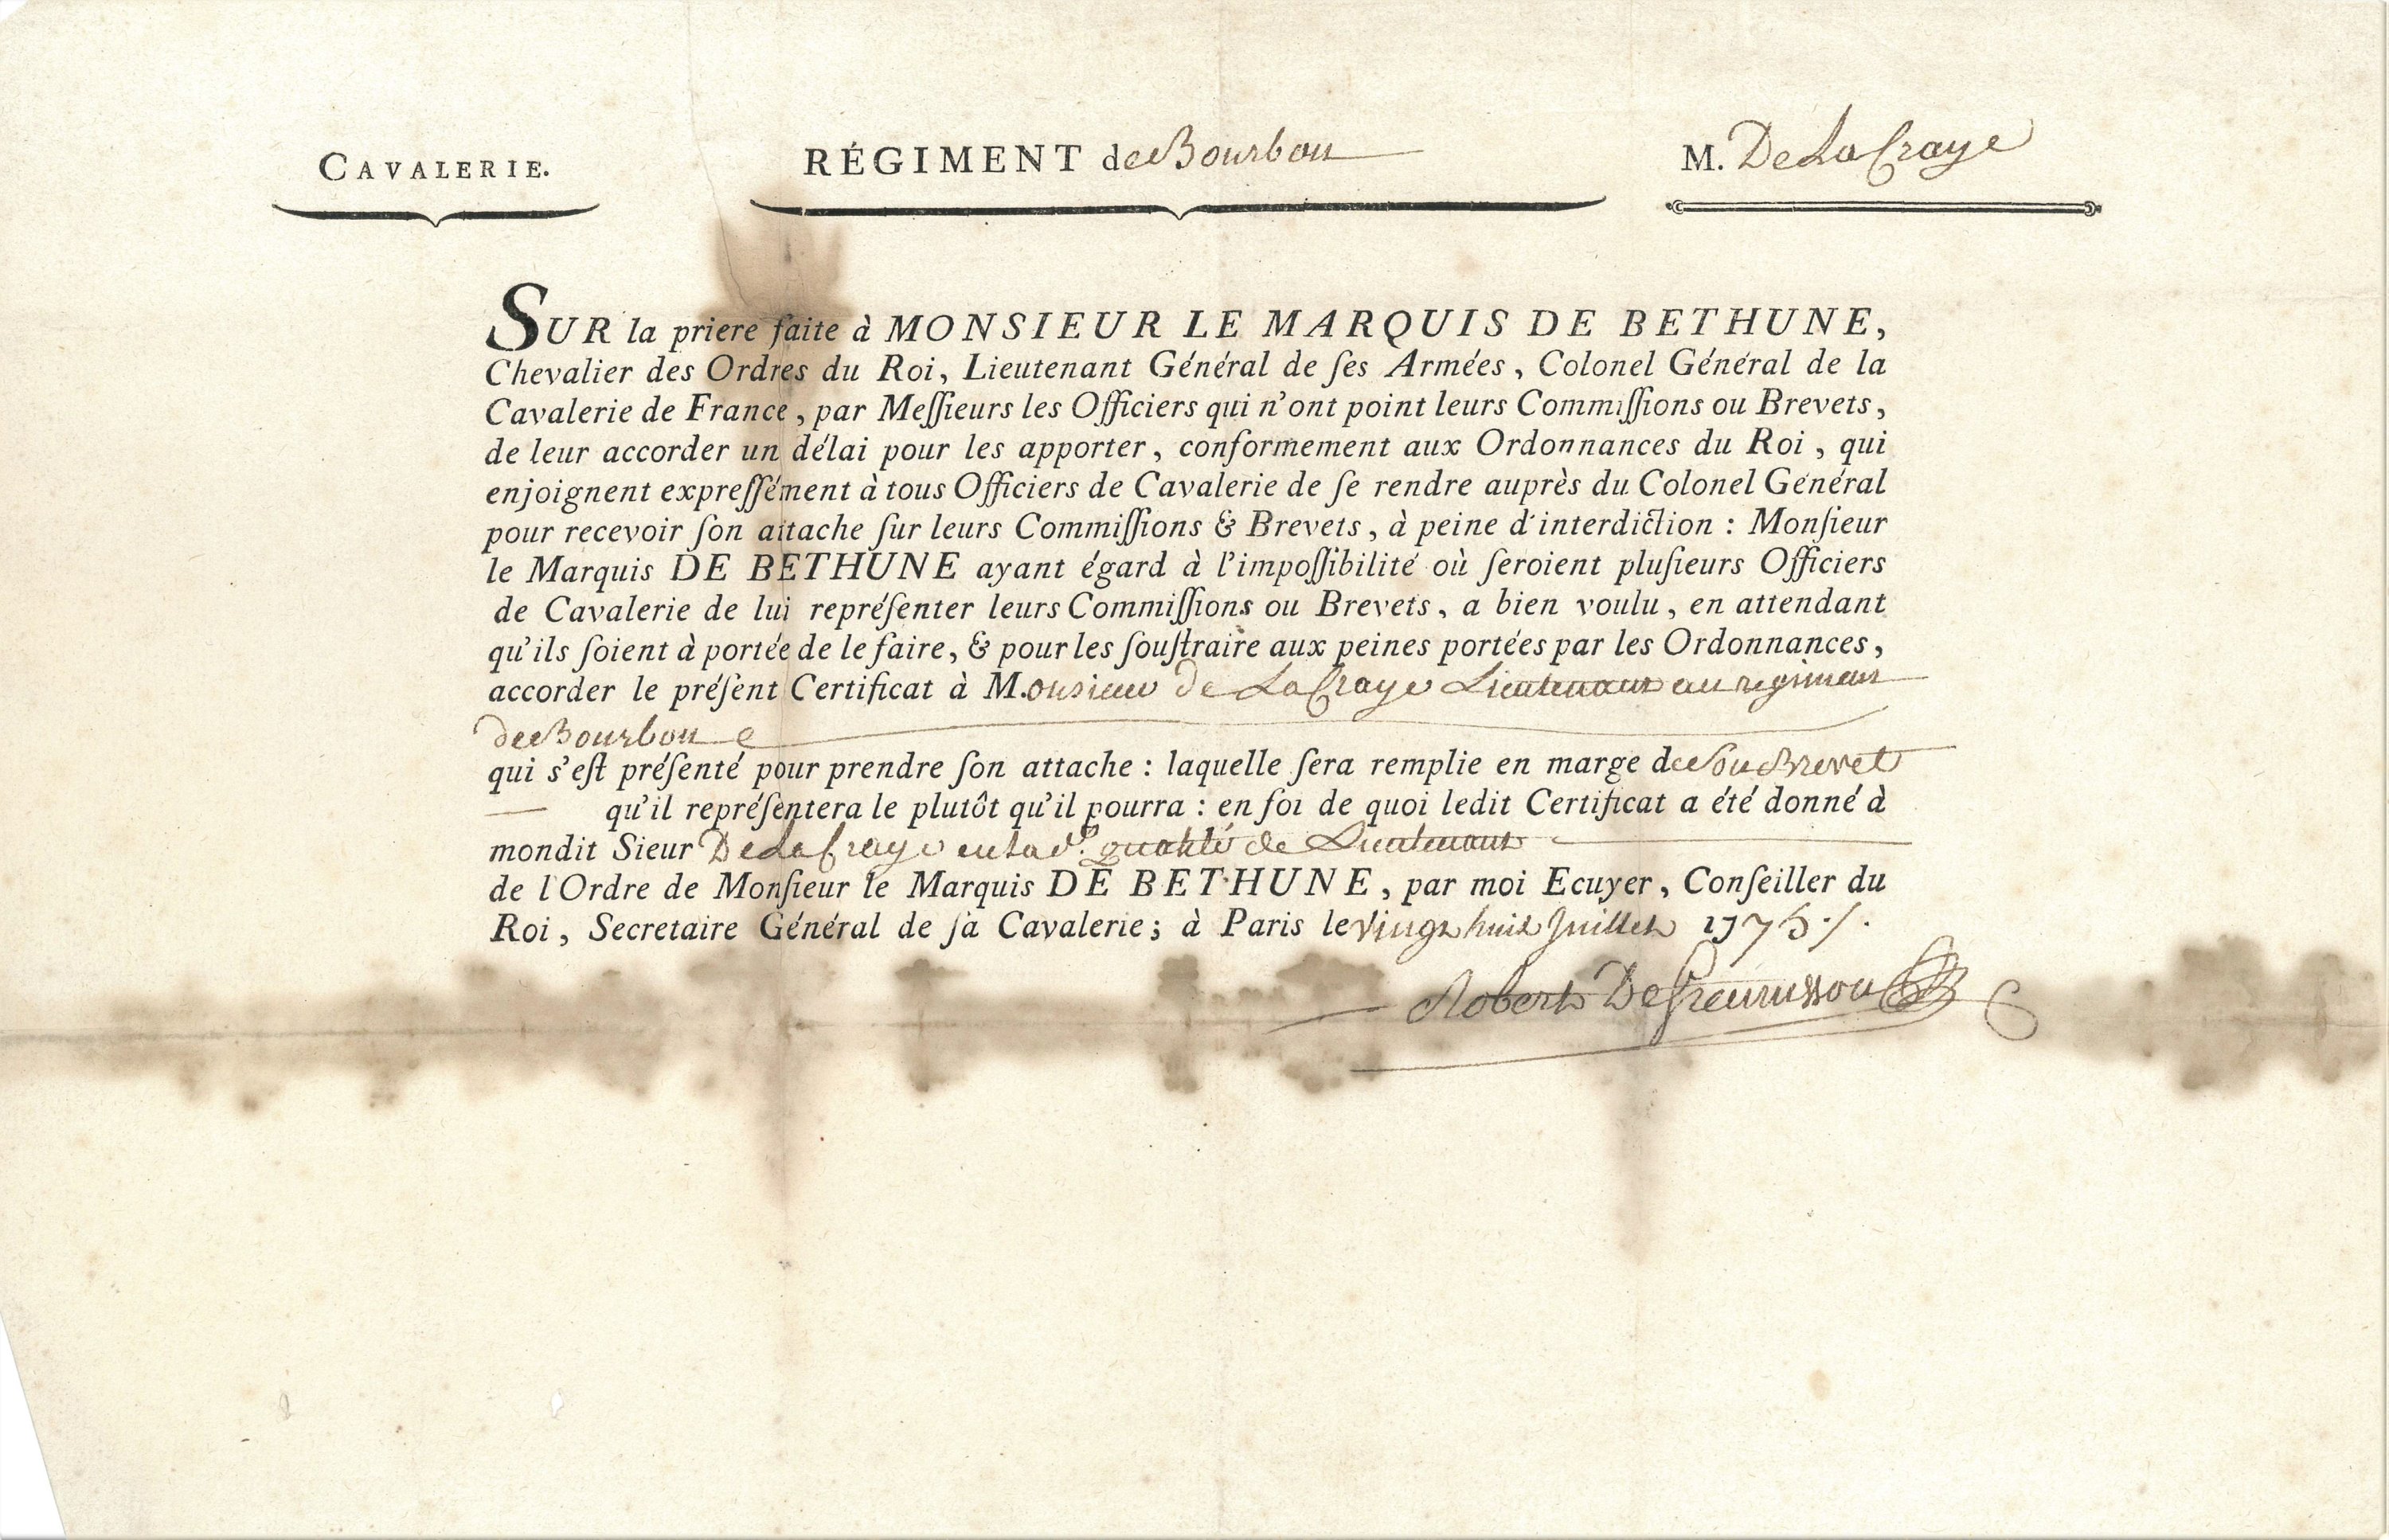 CAVALERIE.
RÉGIMENT de Bourbon
M. De La Fraye
SUR la priere faite à MONSIEUR LE MARQUIS DE BETHUNE,
Chevalier des Ordres du Roi, Lieutenant Général de ſes Armées, Colonel Général de la
Cavalerie de France, par Meſſieurs les Officiers qui n'ont point leurs Commiſſions ou Brevets,
de leur accorder un délai pour les apporter, conformement aux Ordonnances du Roi, qui
enjoignent expreſſément à tous Officiers de Cavalerie de ſe rendre auprès du Colonel Général
pour recevoir ſon attache ſur leurs Commiſſions & Brevets, à peine d'interdiction : Monſieur
le Marquis DE BETHUNE ayant égard à l'impoſſibilité où ſeroient pluſieurs Officiers
de Cavalerie de lui repréſenter leurs Commiſſions ou Brevets, a bien voulu, en attendant
qu'ils ſoient à portée de le faire, & pour les ſouſtraire aux peines portées par les Ordonnances,
accorder le préſent Certificat à M.onsieur de La Fraye Lieutenant au regiment
de Bourbon
qui s'eſt préſenté pour prendre ſon attache : laquelle ſera remplie en marge de Son Brevet
qu'il repréſentera le plutôt qu'il pourra : en foi de quoi ledit Certificat a été donné à
mondit Sieur De La Fraye en sa d. qualité de Lieutenant
de l'Ordre de Monſieur le Marquis DE BETHUNE, par moi Ecuyer, Conſeiller du
Roi, Secretaire Général de ſa Cavalerie; à Paris le vingt huit Juillet 1775 ./.
Robert De